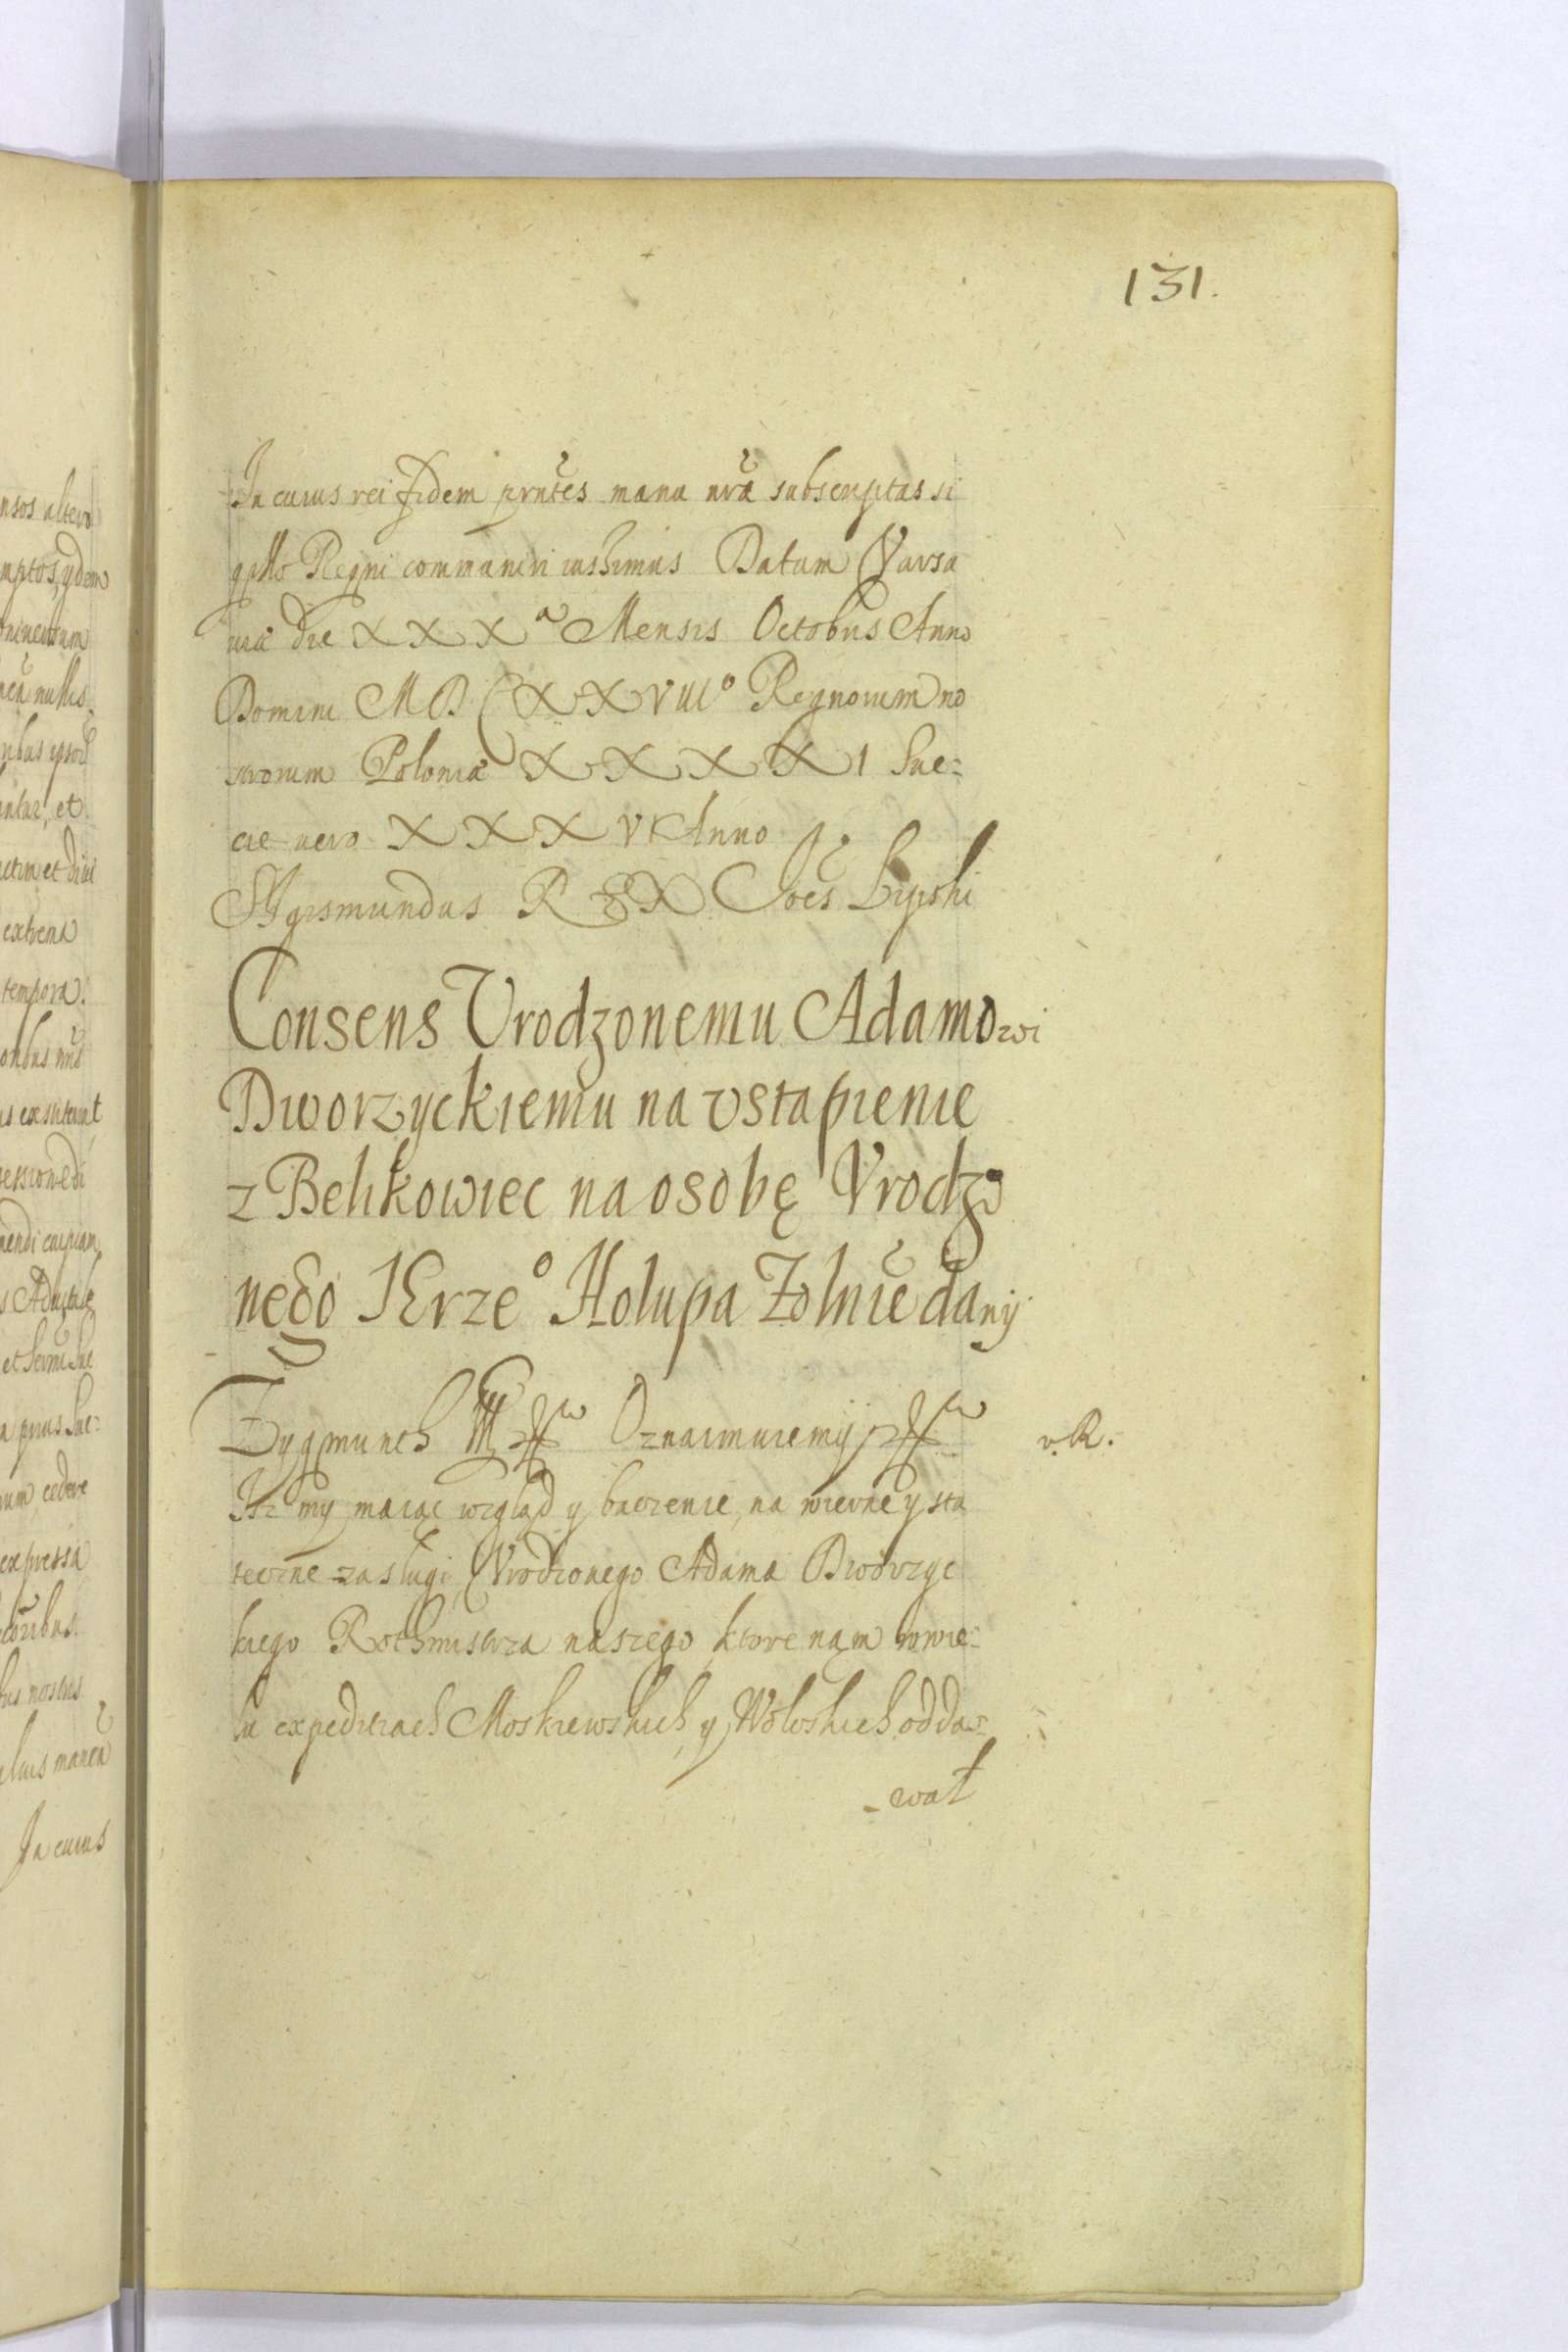 131.
In cuius rei fidem prntes manu nra subscriptas si
gillo Regni communiri iussimus Datum Varsa
viæ die XXXa Mensis Octobris Anno
Domini MDCXXVIIIo Regnorum no
strorum Poloniæ XXXXI Sue=
ciæ vero XXXV Anno
SIgismundus REX Joes Lipski
Consens Vrodzonemu Adamowi
Dworzyckiemu na vstąpienie
z Belikowiec na osobę Vrodzo
nego JErzeo Holupa Zolnie dany
Zygmunth III Oznaimuiemy
v. R.
Iz my maiąc wzgląd y baczenie, na wierne y sta
teczne zasługi Vrodzonego Adama Dworzyc
kiego Rothmistrza naszego, ktore nąm w wie=
lu expeditiach Moskiewskich, y Wołoskich oddał=
-wał
nsos altero
mptos, ydem
nullis
et
extrema
tempora.
cedere
expressa
In cuius